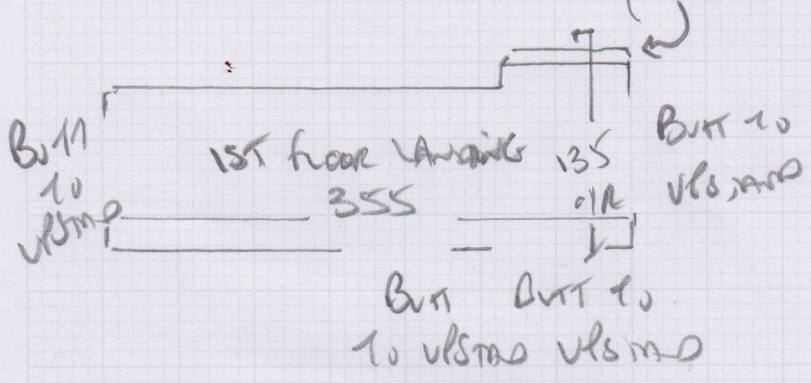 BUTT
TO
UPSTAND
1ST FLOOR LANDING
355
135
O/R
BUTT TO
UPSTAND
BUTT
TO UPSTAND
BUTT TO
UPSTAND